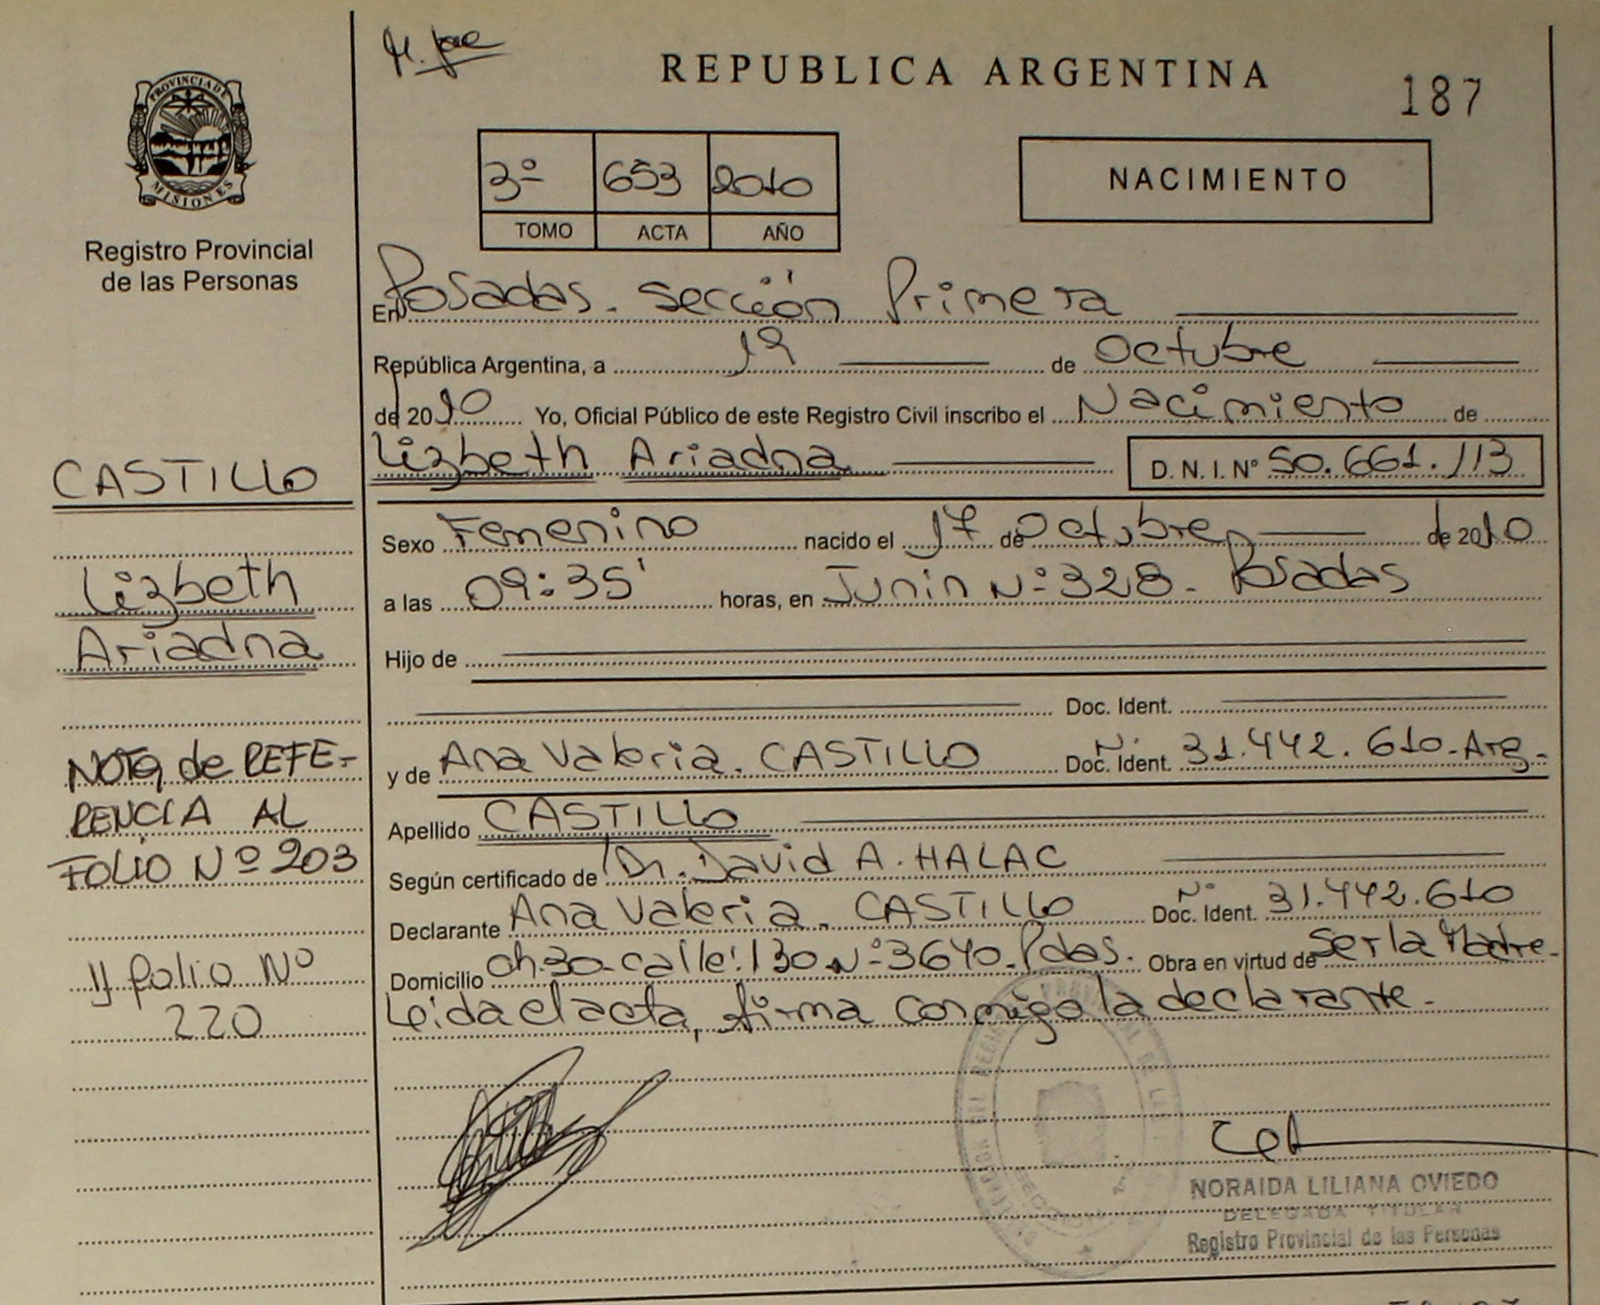 REPUBLICA ARGENTINA
187
PROVINCIA DE
MISIONES
Registro Provincial
de las Personas
3º 653 2010
TOMO ACTA AÑO
NACIMIENTO
En Posadas. sección Primera
República Argentina, a 19 de Octubre
de 2010 Yo, Oficial Público de este Registro Civil inscribo el Nacimiento de
Lizbeth Ariadna D.N.I. Nº 50.661.113
Sexo Femenino nacido el 17 de Octubre de 2010
a las 09:35' horas, en Junin Nº 328. Posadas
Hijo de
Doc. Ident.
y de Ana Valeria. CASTILLO Doc. Ident. Nº 31.442.610-Arg.
Apellido CASTILLO
Según certificado de Dr. David A. HALAC
Declarante Ana Valeria. CASTILLO Doc. Ident. Nº 31.442.610
Domicilio ch.30-calle:130 Nº 3640-Pdas. Obra en virtud de ser la Madre.
Leida el acta, firma conmigo la declarante.
CASTILLO
Lizbeth
Ariadna
NOTA de REFE-
RENCIA AL
FOLIO Nº 203
folio Nº
220
NORAIDA LILIANA OVIEDO
DELEGADA TITULAR
Registro Provincial de las Personas